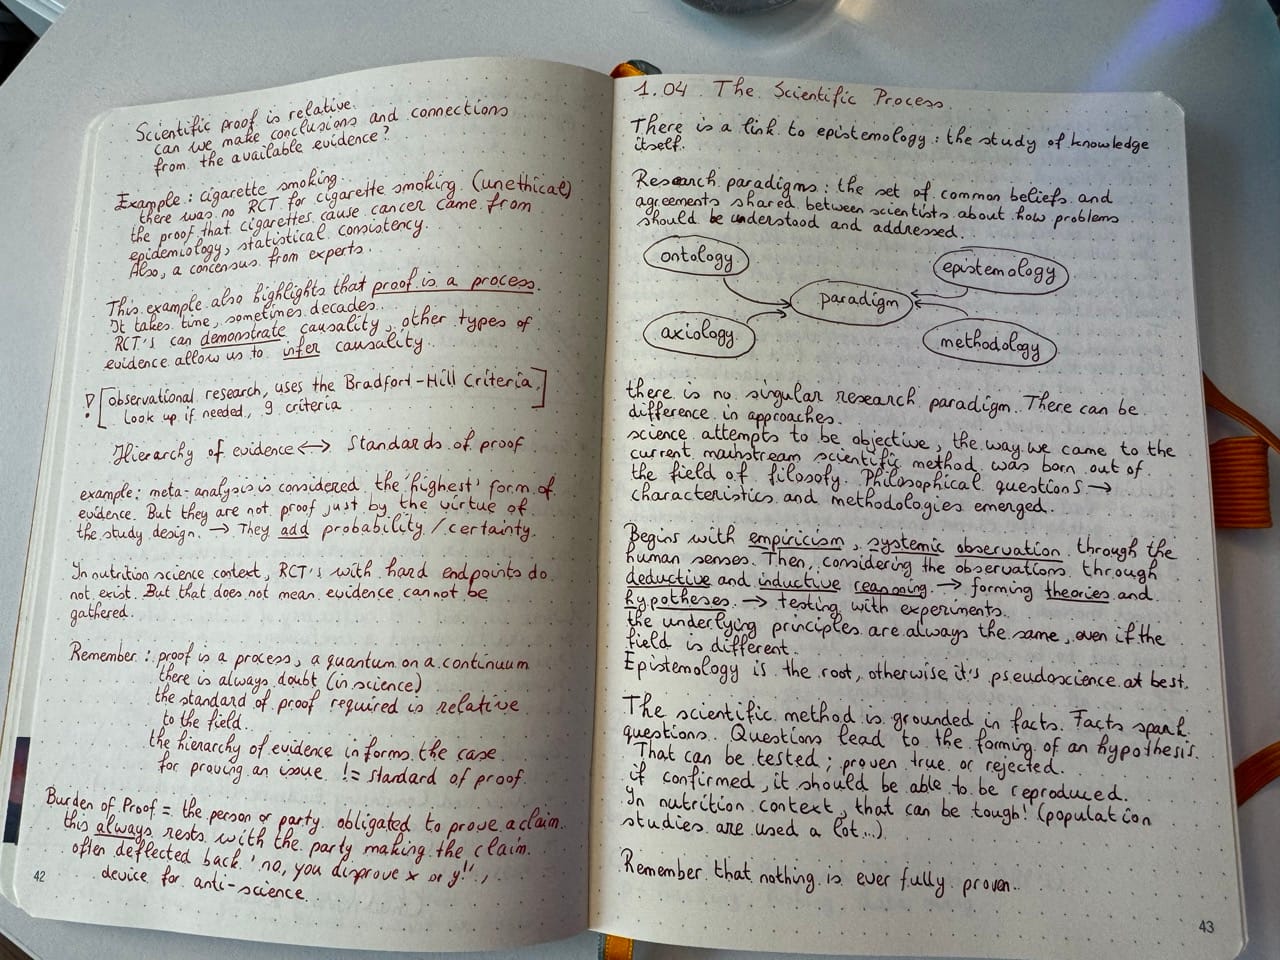 Scientific proof is relative.
can we make conclusions and connections
from the available evidence?
Example: cigarette smoking.
there was no RCT for cigarette smoking (unethical)
the proof that cigarettes cause cancer came from
epidemiology, statistical consistency.
Also, a concensus from experts.
This example also highlights that proof is a process.
It takes time, sometimes decades.
RCT's can demonstrate causality, other types of
evidence allow us to infer causality.
! [observational research, uses the Bradfort-Hill Criteria,
look up if needed, 9 criteria]
Hierarchy of evidence ↔ Standards of proof
example: meta-analysis is considered the 'highest' form of
evidence. But they are not proof just by the virtue of
the study design. → They add probability/certainty.
In nutrition science context, RCT's with hard endpoints do
not exist. But that does not mean evidence cannot be
gathered.
Remember: proof is a process, a quantum on a continuum
there is always doubt (in science)
the standard of proof required is relative
to the field.
the hierarchy of evidence informs the case
for proving an issue. != standard of proof.
Burden of Proof = the person or party obligated to prove a claim.
this always rests with the party making the claim.
often deflected back 'no, you disprove x or y!',
device for anti-science.
42
1.04 The Scientific Process.
There is a link to epistemology: the study of knowledge
itself.
Research paradigms: the set of common beliefs and
agreements shared between scientists about how problems
should be understood and addressed.
ontology
epistemology
paradigm
axiology
methodology
there is no singular research paradigm. There can be
difference in approaches.
science attempts to be objective, the way we came to the
current mainstream scientific method was born out of
the field of filosofy. Philosophical questions →
characteristics and methodologies emerged.
Begins with empiricism, systemic observation through the
human senses. Then, considering the observations through
deductive and inductive reasoning. → forming theories and
hypotheses. → testing with experiments.
the underlying principles are always the same, even if the
field is different.
Epistemology is the root, otherwise it's pseudoscience at best.
The scientific method is grounded in facts. Facts spark
questions. Questions lead to the forming of an hypothesis.
That can be tested; proven true or rejected.
if confirmed, it should be able to be reproduced.
In nutrition context, that can be tough! (population
studies are used a lot...)
Remember that nothing is ever fully proven.
43